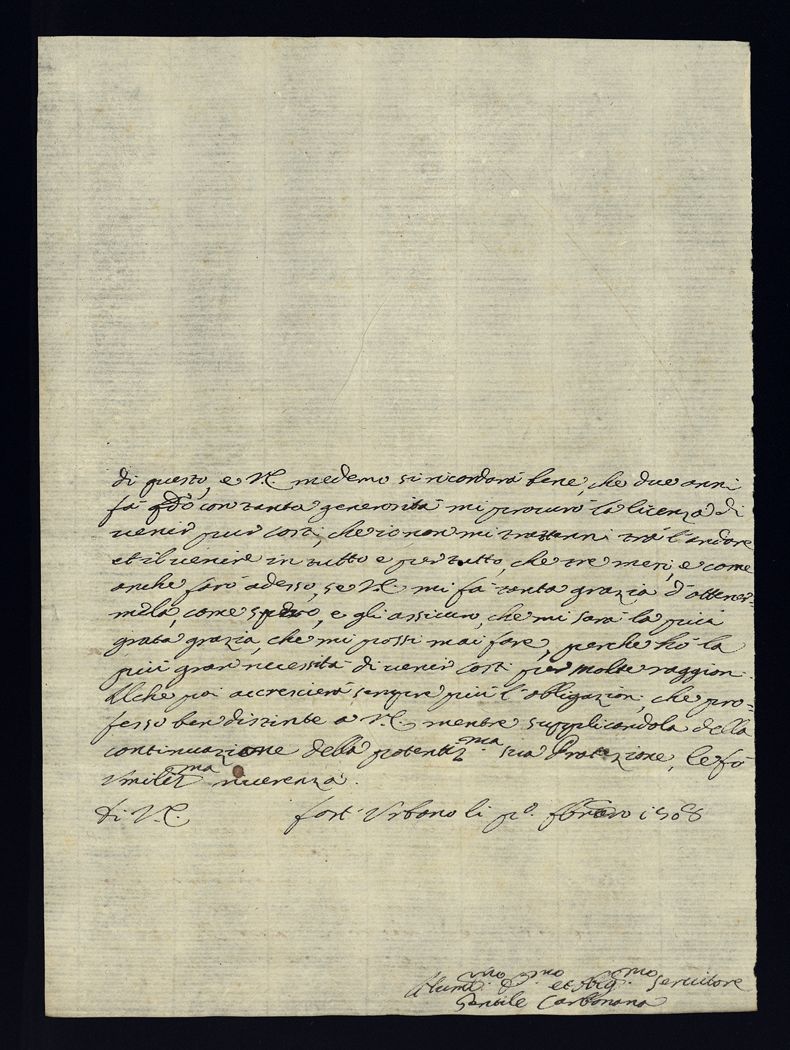 di questo, e V.E. medemo si ricordarà bene, che due anni
fà qdo con tanta generosità mi procurò la licenza di
venir pur costì, che io non mi trattenni trà l'andare
et il venire in tutto e per tutto, che tre mesi, e come
anche farò adesso, se V.E. mi fà tanta grazia d'ottener-
mela, come spero, e gli assicuro, che mi sarà la più
grata grazia, che mi possi mai fare, perche hò la
più gran necessità di venir costì per molte raggion.
Il che poi accrescierà sempre più l'obligazion, che pro-
fesso ben distinte a V.E. mentre supplicandola della
continuazione della potentis.ma sua Protezione, le fò
Umilis.ma riverenza.
di V.E. fort' Urbano li po. febraro 1708
Humil.mo D.mo et Oblig.mo Servitore
Gentile Carbonana